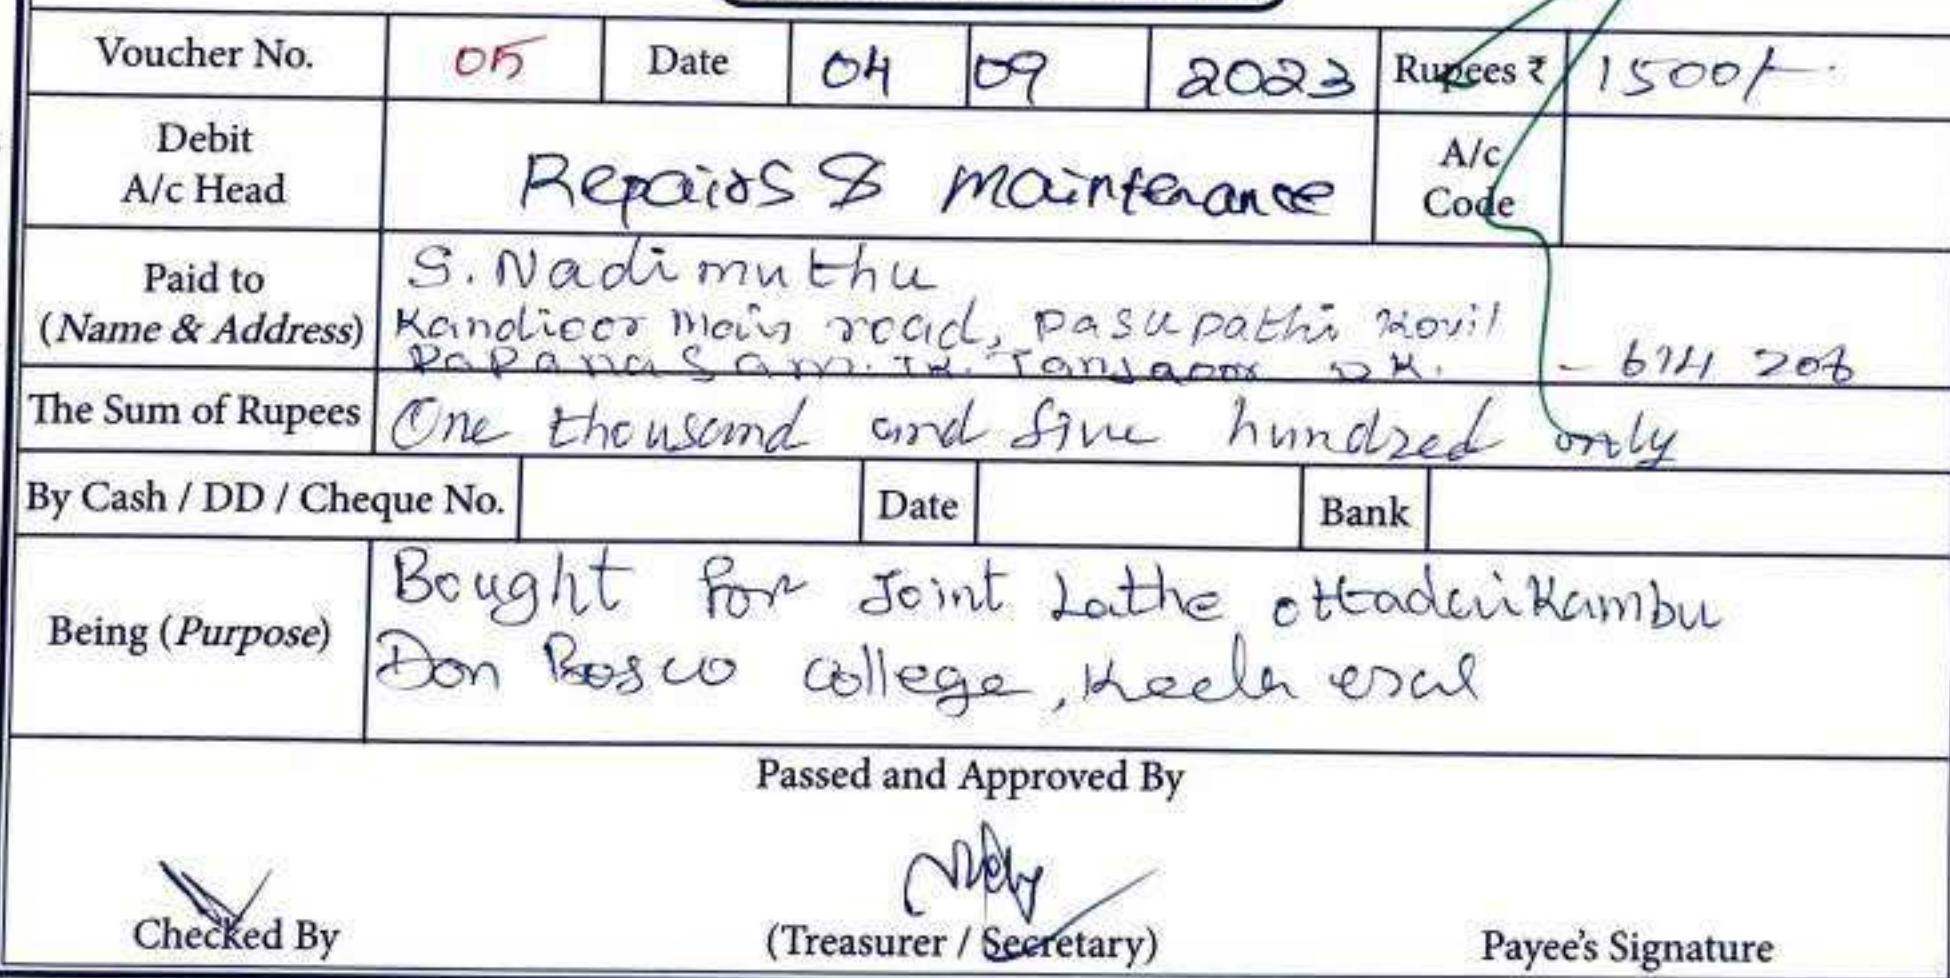 Voucher No. 05 Date 04 09 2023 Rupees ₹ 1500/-
Debit A/c Head Repairs & Maintenance A/c Code
Paid to S. Nadimuthu
(Name & Address) Kandioor Main road, Pasupathi Kovil
Papanasam. TK. Tanjaoor DK. - 614 206
The Sum of Rupees One thousand and five hundred only
By Cash / DD / Cheque No. Date Bank
Being (Purpose) Bought for Joint Lathe ottadaikambu
Don Bosco College, Keela eral
Passed and Approved By
Checked By (Treasurer / Secretary) Payee's Signature